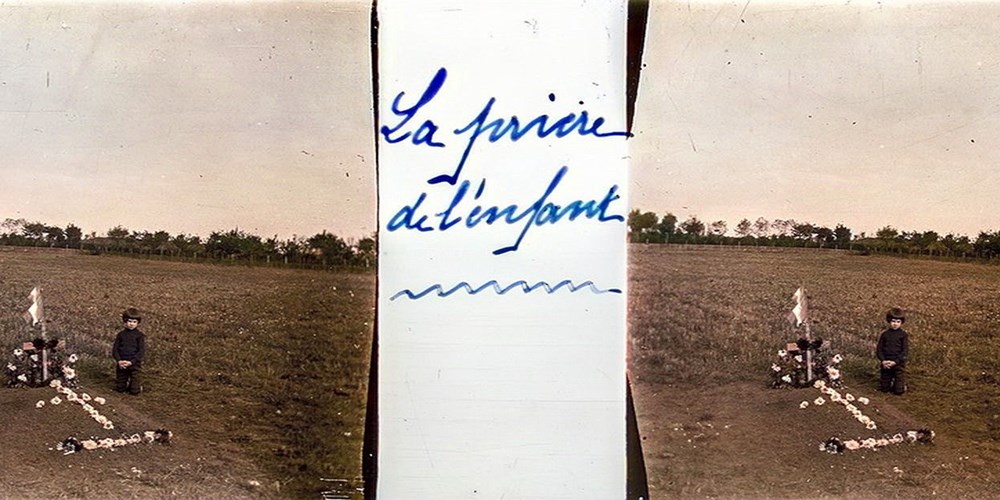 La prière
de l'enfant